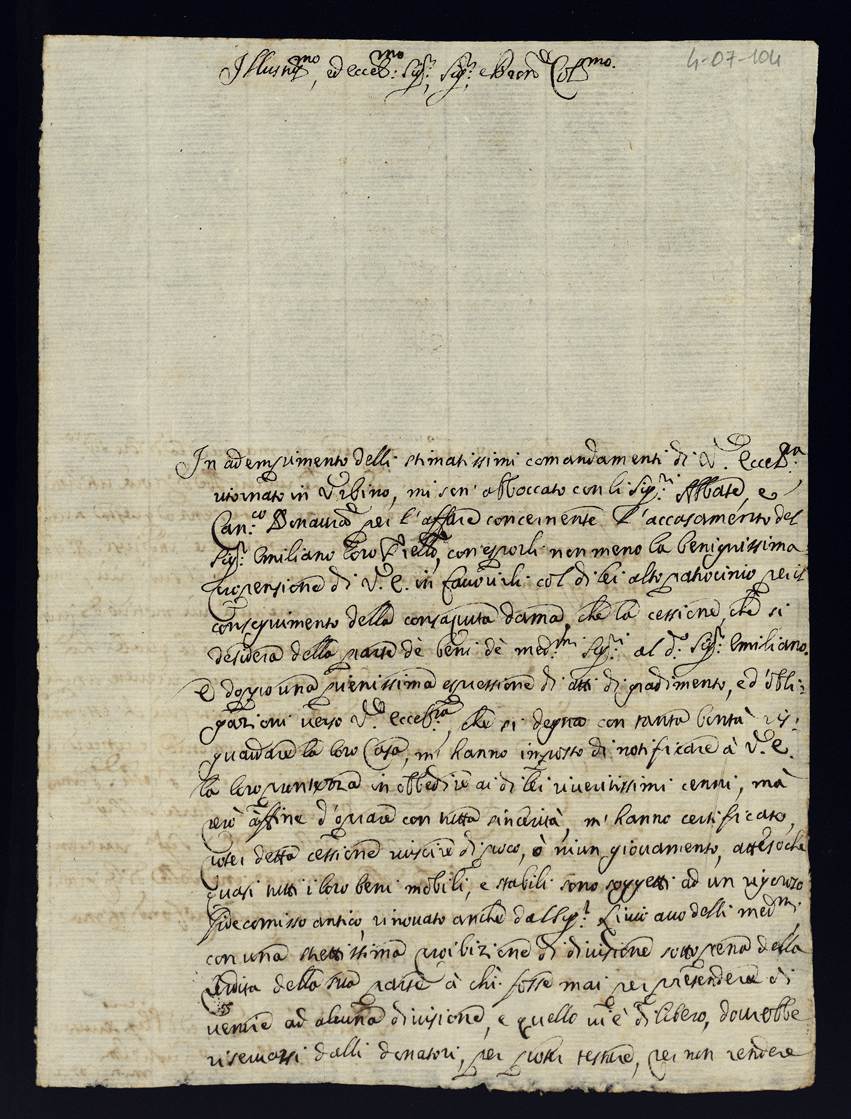 4-07-104
Illustr.mo, ed eccell.mo Sig.r, Sig.r, e Pron Col.mo.
In adempimento delli stimatissimi comandamenti di V. Eccell.za
ritornato in Urbino, mi son' abboccato con li Sig.ri Abbate, e
Can.co Bonaura per l'affare concernente l'accasamento del
Sig.r Emiliano loro Fratello, con esporli non meno la benignissima
propensione di V. E. in favorirli col di lei alto patrocinio per il
conseguimento della consaputa dama, che la cessione, che si
desidera della parte dè beni dè med.mi Sig.ri al d.o Sig.r Emiliano.
E doppo una pienissima espressione di atti di gradimento, ed obli-
gazioni verso V. Eccell.za, che si degna con tanta bontà ris-
guardare la loro Casa, m' hanno imposto di notificare à V. E.
la loro prontezza in obbedire ai di lei riveritissimi cenni, mà
però affine d'oprare con tutta sincerità m' hanno certificato,
poter detta cessione riuscire di poco, ò niun giovamento, attesoche
quasi tutti i loro beni mobili, e stabili sono soggetti ad un rigoroso
Fidecomisso antico, rinovato anche dal Sig.r Livio avo delli med.mi
con una strettissima proibizione di divisione sotto pena della
perdita della sua parte à chi fosse mai per pretendere di
venire ad alcuna divisione, e quello vi è di libero, dovrebbe
riservarsi dalli donatori, per poter testare, per non rendere